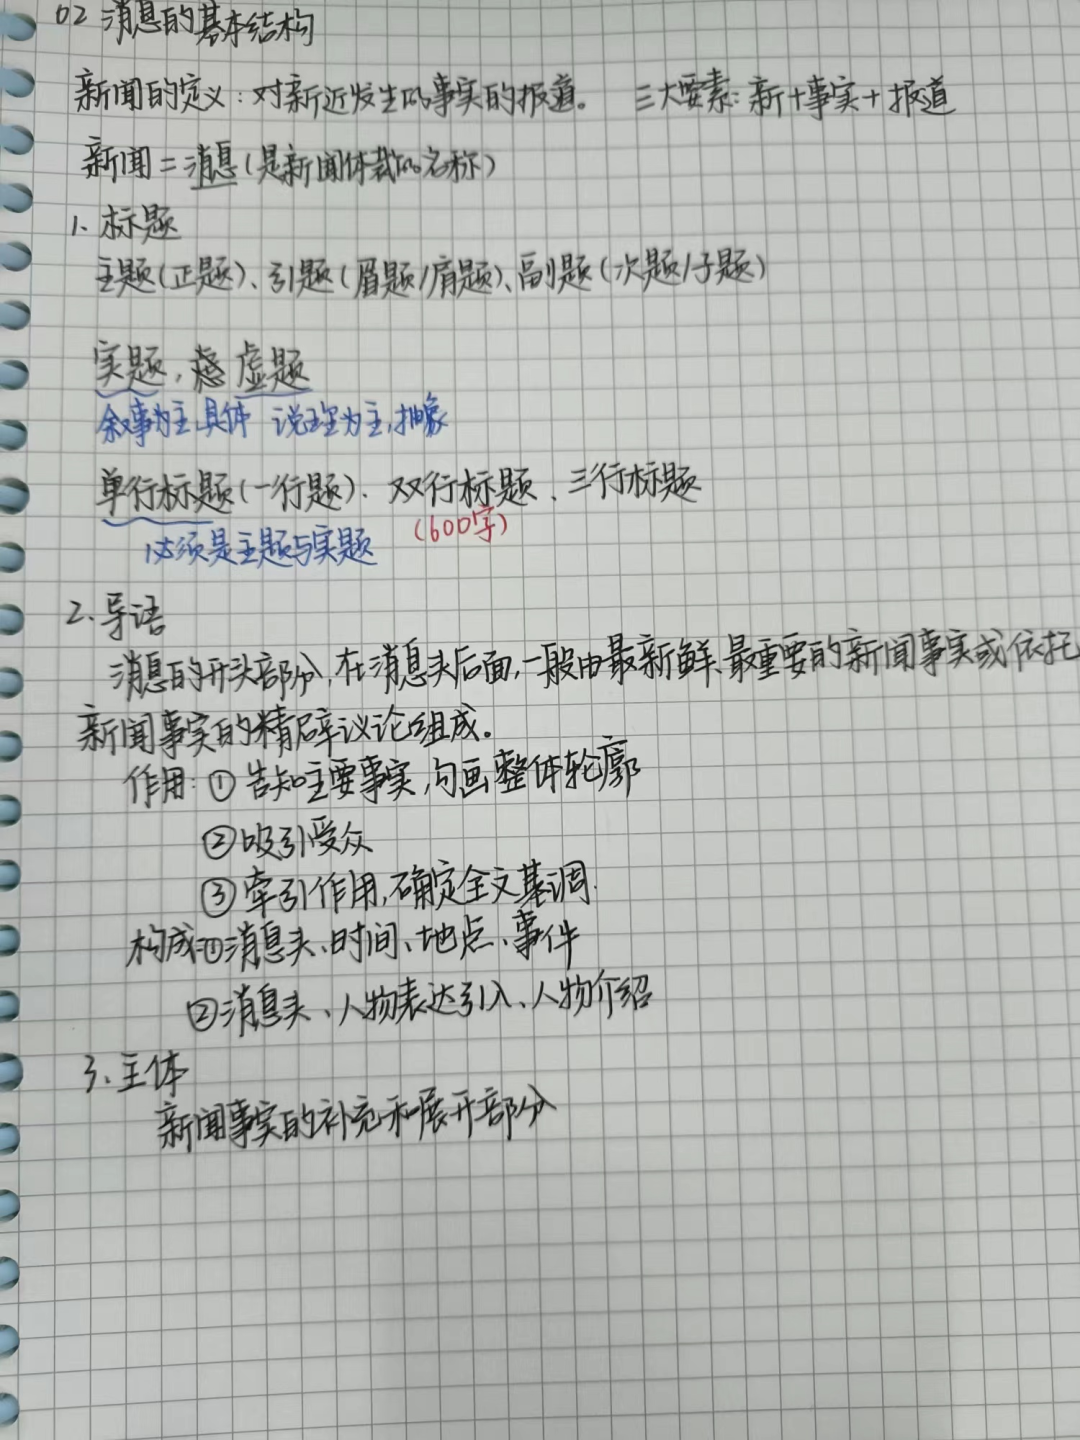 02 消息的基本结构
新闻的定义：对新近发生的事实的报道。 三大要素：新+事实+报道
新闻=消息(是新闻体裁的名称)
1、标题
主题(正题)、引题(眉题/肩题)、副题(次题/子题)
实题, 虚题
叙事为主,具体 说理为主,抽象
单行标题(一行题)、双行标题、三行标题
(600字)
必须是主题与实题
2.导语
消息的开头部分,在消息头后面,一般由最新鲜、最重要的新闻事实或依托
新闻事实的精辟议论组成。
作用：① 告知主要事实,勾画整体轮廓
②吸引受众
③牵引作用,确定全文基调.
构成:①消息头、时间、地点、事件
②消息头、人物表达引入、人物介绍
3、主体
新闻事实的补充和展开部分